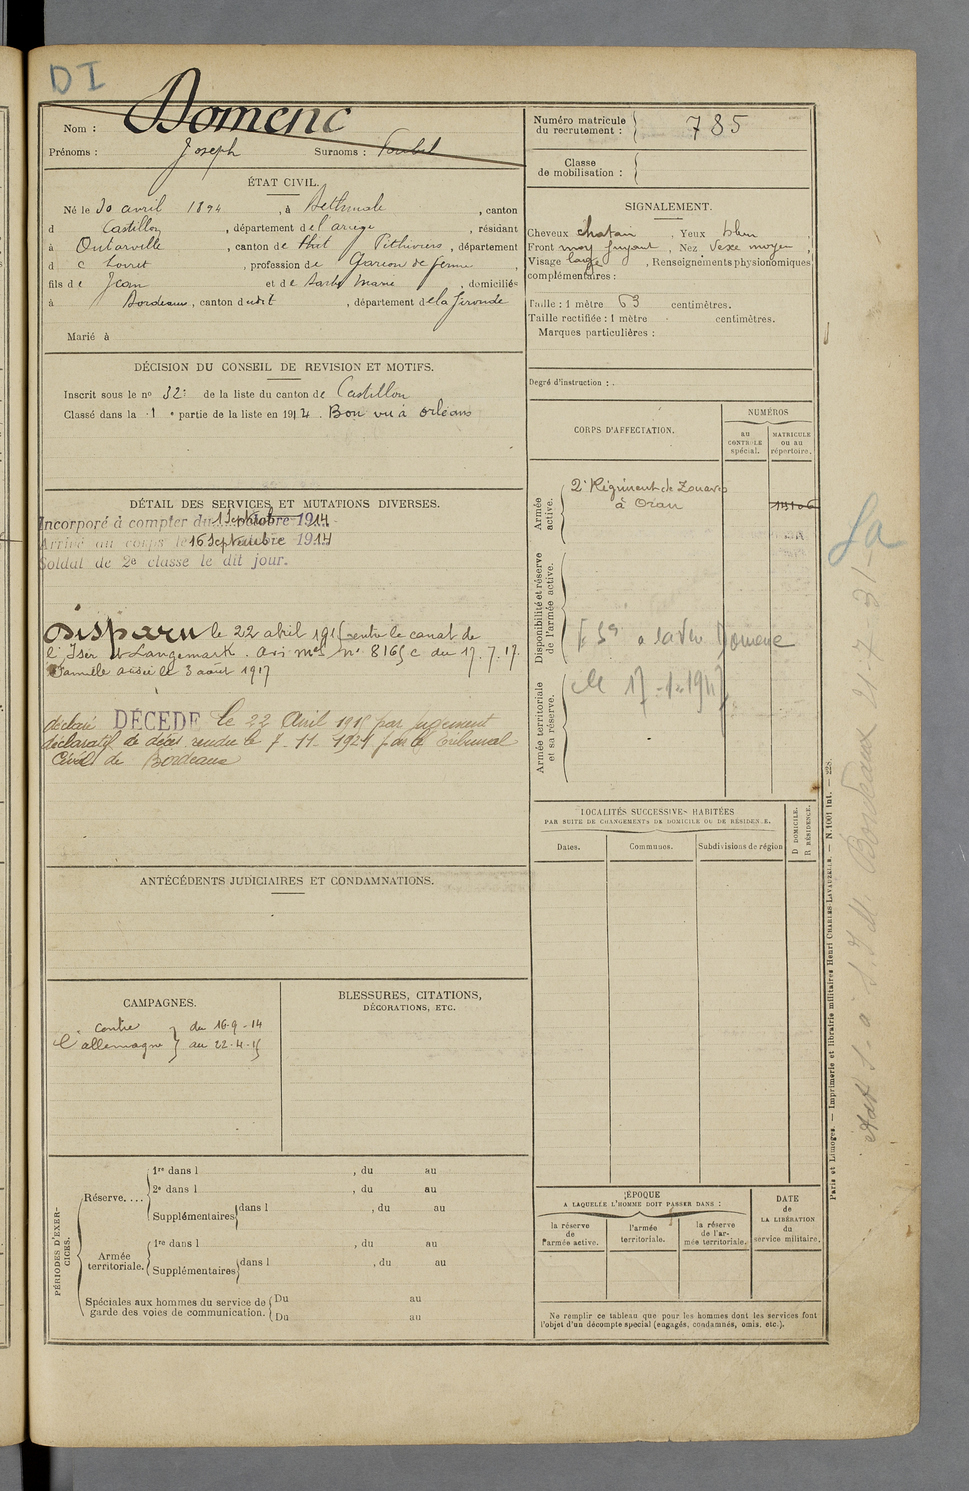 DI
Nom : Domenc
Prénoms : Joseph Surnoms :
ÉTAT CIVIL.
Né le 30 avril 1894, à Bethmale, canton
d Castillon, département de l'ariège, résidant
à Outarville, canton de Pithiviers, département
d Loiret, profession de Garçon de ferme,
fils de Jean et de Marie, domiciliés
à Bordeaux, canton dudit, département de la Gironde
Marié à
DÉCISION DU CONSEIL DE REVISION ET MOTIFS.
Inscrit sous le no 32 de la liste du canton de Castillon
Classé dans la 1e partie de la liste en 1914. Bon vu à orléans
DÉTAIL DES SERVICES ET MUTATIONS DIVERSES.
Incorporé à compter du 1 Sept 1914
Arrivé au corps le 16 Septembre 1914
Soldat de 2e classe le dit jour.
Disparu le 22 abril 1915 entre le canal de
l'Iser et Langemark. avis mel no 8165 c du 17.7.17.
Famille avisée le 3 août 1917
déclaré DÉCÉDÉ le 22 Avril 1915 par jugement
déclaratif de décès rendu le 7-11-1921 par le tribunal
Civil de Bordeaux
ANTÉCÉDENTS JUDICIAIRES ET CONDAMNATIONS.
CAMPAGNES.
contre } du 16-9-14
l'allemagne } au 22-4-15
BLESSURES, CITATIONS,
DÉCORATIONS, ETC.
PÉRIODES D'EXERCICES.
Réserve....
1re dans l , du au
2e dans l , du au
Supplémentaires dans l , du au
Armée territoriale.
1re dans l , du au
Supplémentaires dans l , du au
Spéciales aux hommes du service de garde des voies de communication.
Du au
Du au
Numéro matricule du recrutement : 785
Classe de mobilisation :
SIGNALEMENT.
Cheveux chatain, Yeux bleu,
Front moy fuyant, Nez vexe moyen,
Visage large, Renseignements physionomiques
complémentaires :
Taille : 1 mètre 63 centimètres.
Taille rectifiée : 1 mètre centimètres.
Marques particulières :
Degré d'instruction :
CORPS D'AFFECTATION.
NUMÉROS
AU CONTRÔLE spécial.
MATRICULE ou au répertoire.
Armée active.
2e Régiment de Zouaves
à Oran
Disponibilité et réserve de l'armée active.
Domenc
le 17-1-1917
Armée territoriale et sa réserve.
LOCALITÉS SUCCESSIVES HABITÉES
PAR SUITE DE CHANGEMENTS DE DOMICILE OU DE RÉSIDENCE.
Dates. Communes. Subdivisions de région
D DOMICILE.
R RÉSIDENCE.
ÉPOQUE
A LAQUELLE L'HOMME DOIT PASSER DANS :
la réserve de l'armée active.
l'armée territoriale.
la réserve de l'armée territoriale.
DATE de LA LIBÉRATION du service militaire.
Ne remplir ce tableau que pour les hommes dont les services font
l'objet d'un décompte spécial (engagés, condamnés, omis, etc.).
Paris et Limoges. — Imprimerie et librairie militaires Henri CHARLES-LAVAUZELLE. — N. 1001 Int. — 228.